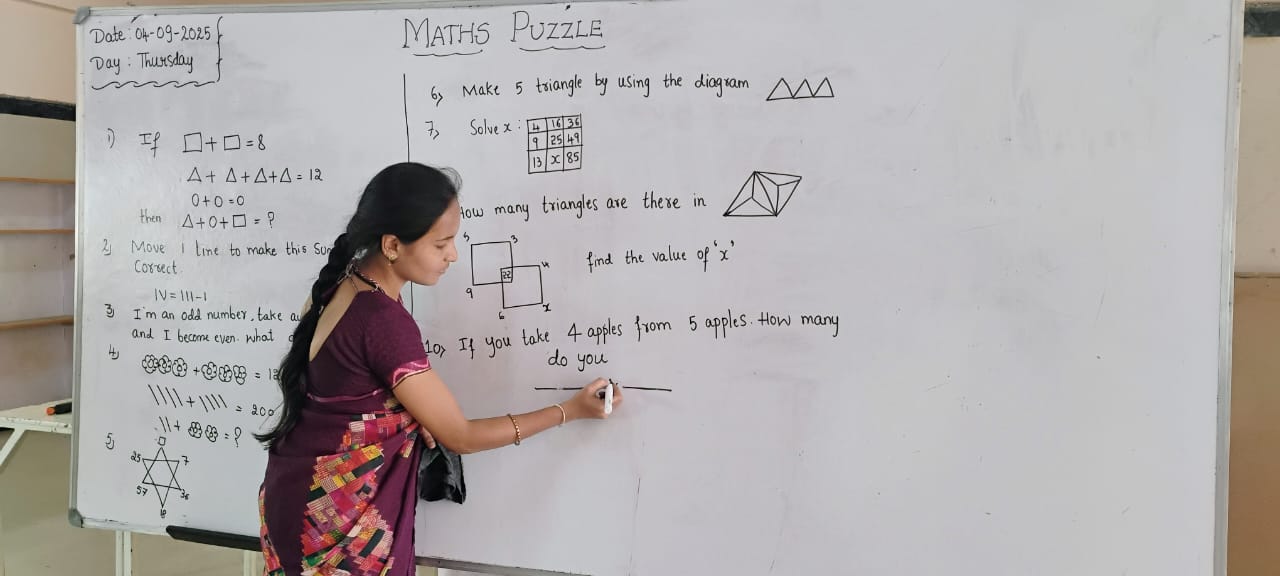 Date: 04-09-2025
Day: Thursday
MATHS PUZZLE
1) If □+□=8
△+ △+△+△= 12
0+0=0
then △+0+□ = ?
2) Move 1 line to make this
Correct.
IV = III-I
3) I'm an odd number, take
and I become even. what
4) + =
\\\\ + \\\\ = 200
\\ + = ?
5)
25 7
57 36
6) Make 5 triangle by using the diagram
7) Solve x :
4 16 36
9 25 49
13 x 85
How many triangles are there in
5 3
22 4
9
6 x
find the value of 'x'
10) If you take 4 apples from 5 apples. How many
do you